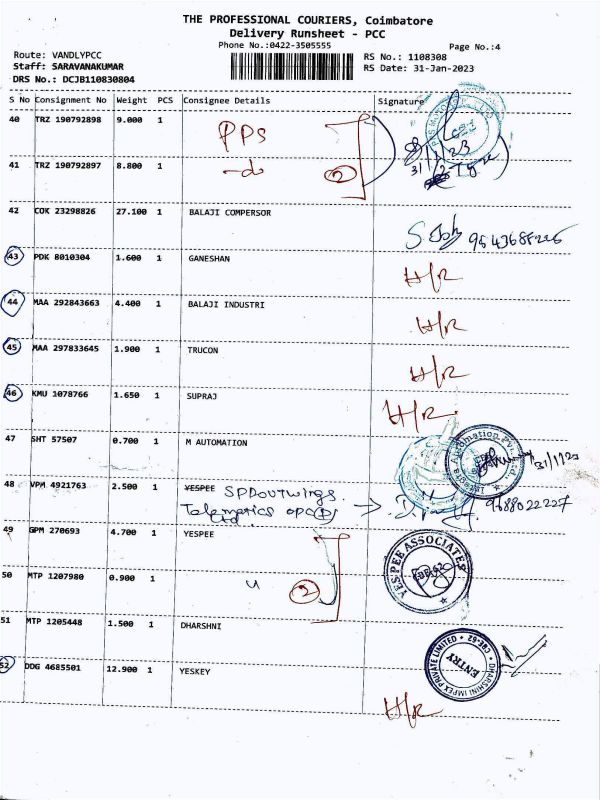 THE PROFESSIONAL COURIERS, Coimbatore
Delivery Runsheet - PCC
Phone No.:0422-3505555
Page No.:4
Route: VANDLYPCC
RS No.: 1108308
Staff: SARAVANAKUMAR
RS Date: 31-Jan-2023
DRS No.: DCJB110830804
S No Consignment No Weight PCS Consignee Details Signature
40 TRZ 190792898 9.000 1 PPS
31/1/23
41 TRZ 190792897 8.800 1 -do 2
42 COK 23298826 27.100 1 BALAJI COMPERSOR
43 PDK 8010304 1.600 1 GANESHAN H/R
44 MAA 292843663 4.400 1 BALAJI INDUSTRI H/R
45 MAA 297833645 1.900 1 TRUCON H/R
46 KMU 1078766 1.650 1 SUPRAJ H/R
47 SHT 57507 0.700 1 M AUTOMATION 31/1/23
48 VPM 4921763 2.500 1 YESPEE SPDOUTWINGS 9688022227
Telematics OPC
Ltd
49 GPM 270693 4.700 1 YESPEE YESPEE ASSOCIATES
50 MTP 1207980 0.900 1 u 2
51 MTP 1205448 1.500 1 DHARSHNI DHARSHINI IMPEX PRIVATE LIMITED CBE-62 ENTRY
52 DDG 4685501 12.900 1 YESKEY H/R